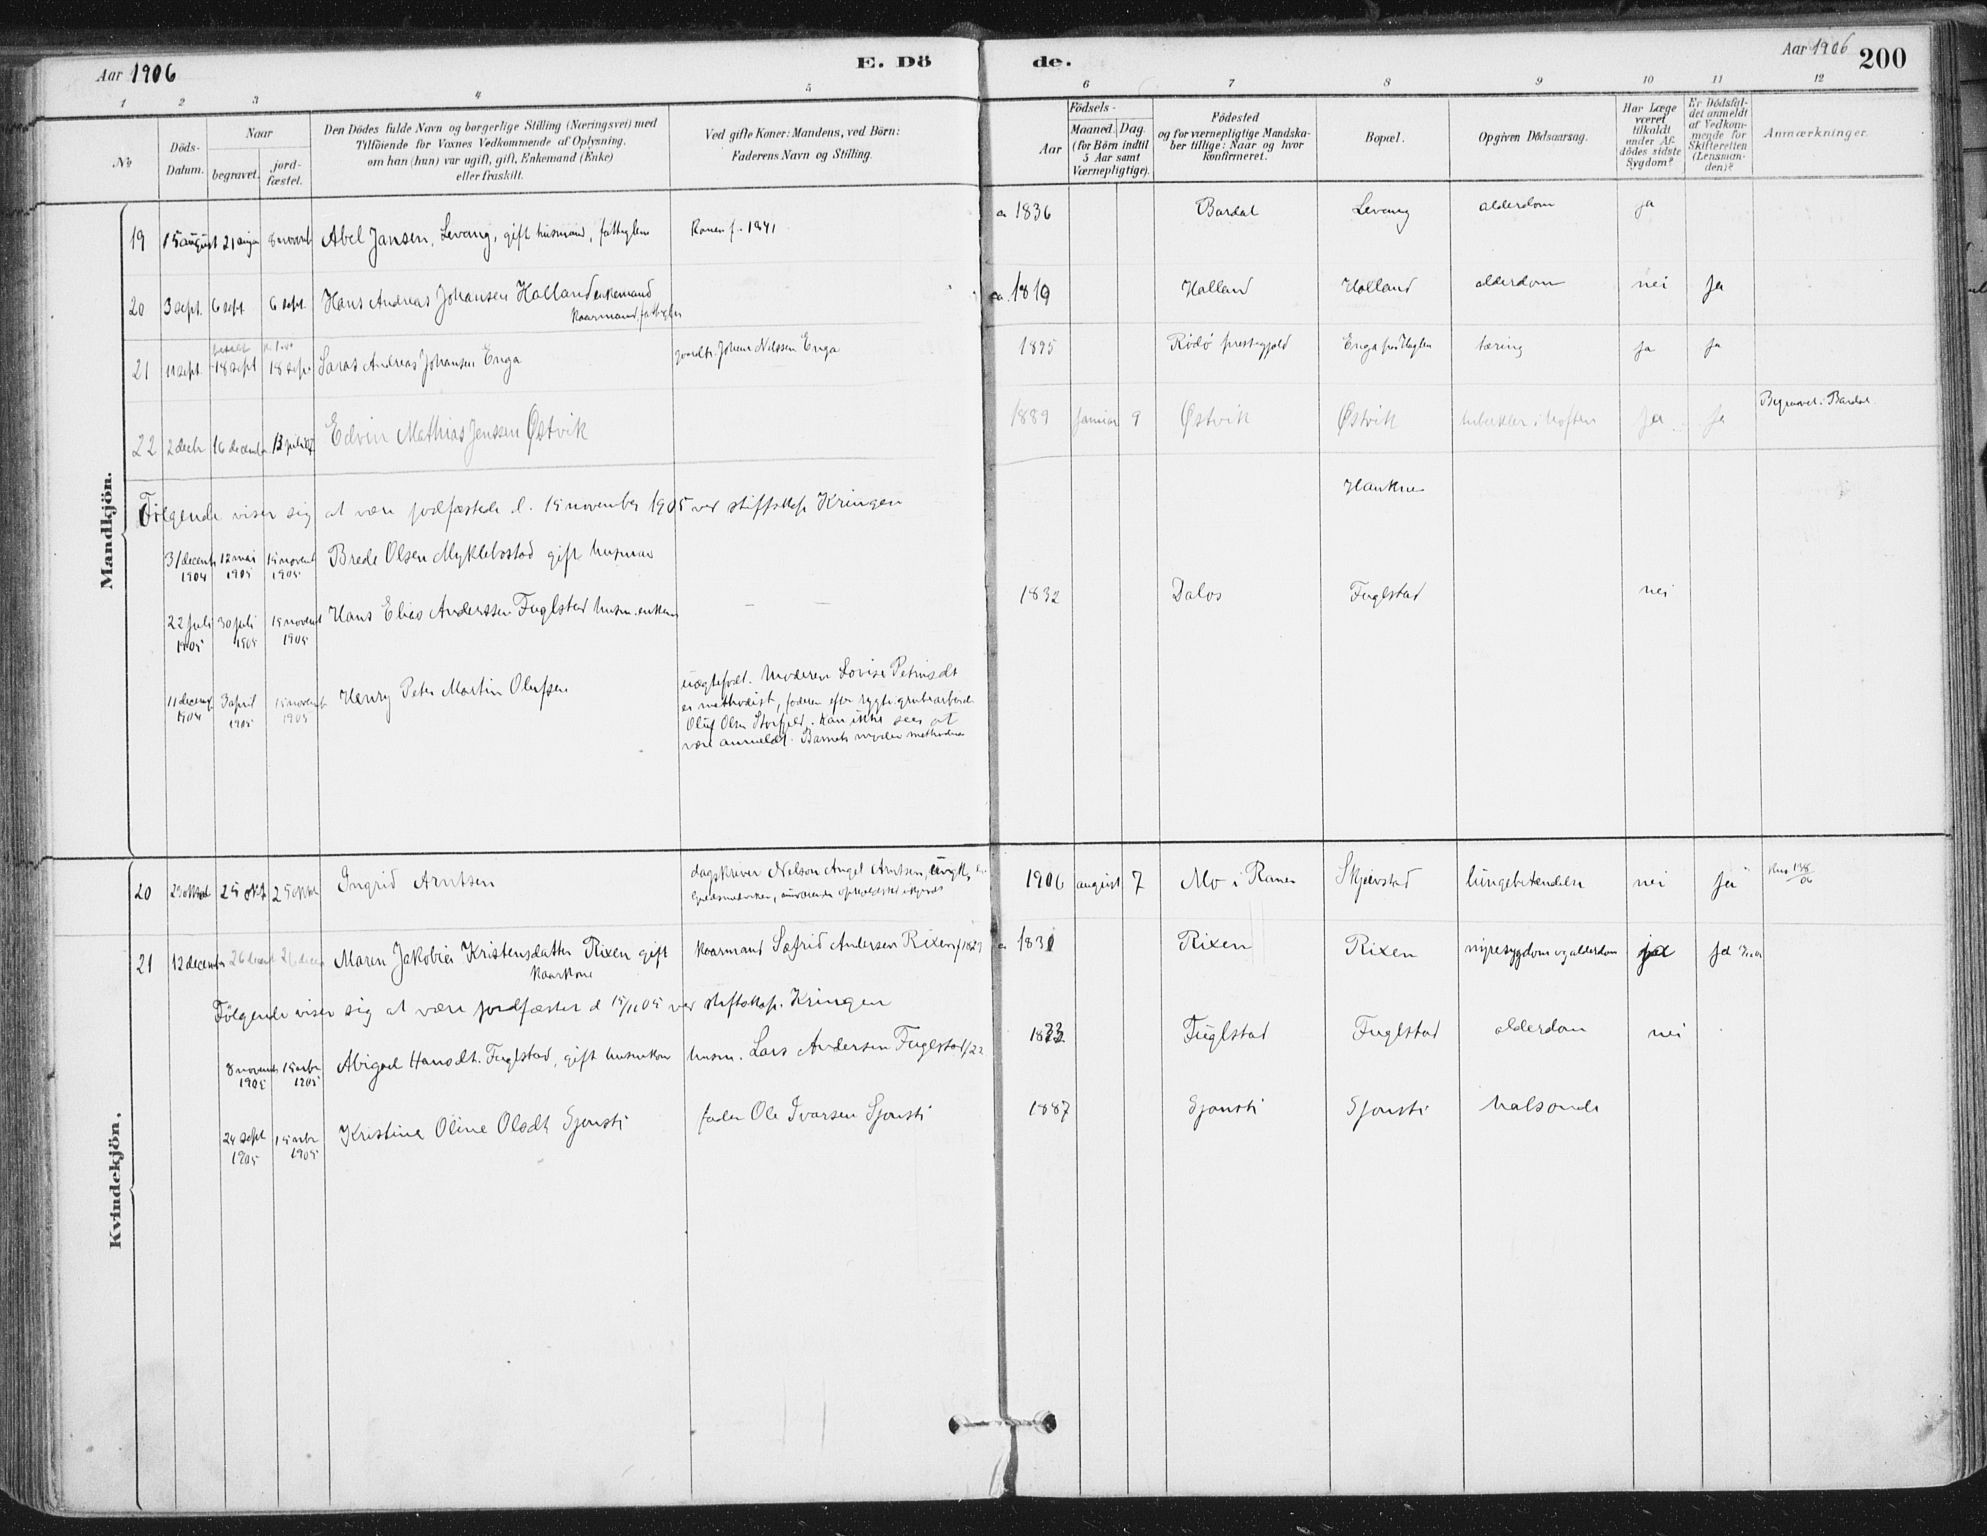 Aar 1906
E. Dö
de.
Aar 1906
200
1 2 3 4 5 6 7 8 9 10 11 12
No
Döds-
Datum.
Naar
begravet.
jord-
fæstet.
Den Dödes fulde Navn og borgerlige Stilling (Næringsvei) med
Tilföiende for Voxnes Vedkommende af Oplysning,
om han (hun) var ugift, gift, Enkemand (Enke)
eller fraskilt.
Ved gifte Koner: Mandens, ved Börn:
Faderens Navn og Stilling.
Födsels-
Aar
Maaned. Dag.
(for Börn indtil
5 Aar samt
Værnepligtige).
Födested
og for værnepligtige Mandska-
ber tillige: Naar og hvor
konfirmeret.
Bopæl.
Opgiven Dödsaarsag.
Har Læge
været
tilkaldt
under Af-
dödes sidste
Sygdom?
Er Dödsfal-
det anmeldt
af Vedkom-
mende for
Skifteretten
(Lensman-
den)?
Anmærkninger.
Mandkjön.
19 15 august 21 8 Abel Jansen, Levang, gift husmand, Konen f. 1841 1836 Bardal Levang alderdom ja
20 3 sept. 6 sept. 6 sept. Hans Andreas Johansen Holland enkemand ca. 1819 Holland Holland alderdom nei ja
kaarmand
21 11 sept. 18 sept 18 sept Andreas Johansen Enga Johan Nilssen Enga 1895 Rödö prestegjeld Enga tæring ja ja
22 2 decbr 16 december 13 juli Edvin Mathias Jenssen Østvik 1889 januar 9 Østvik Østvik i hoften ja ja Begravet i Bardal
Følgende viser sig at være jordfæstede d. 15 november 1905 ved stiftskap. Kringen
31 decemb 1904 12 mai 1905 15 novemb 1905 Brede Olsen Myklebostad gift husman
22 juli 1905 30 juli 1905 15 novemb 1905 Hans Elias Anderssen Fuglstad husm. enkem 1832 Dalos Fuglstad nei
11 decemb 1904 3 april 1905 15 novemb 1905 Henry Peter Martin Olufsen uægtefødt. Moderen Lovise
er methodist, faderen efter rygte grubearbeid.
Oluf Olsen Storfjeld. Kan ikke sees at
være anmeldt. Barnets moder methodist
Kvindekjön.
20 25 okt 25 Ingrid Arntsen dagskriver Nelson Angel Arntsen, 1906 august 7 Mo i Ranen Skjævstad lungebetændelse nei ja 138/06
21 12 december 26 decem 26 decem Maren Jakobie Kristensdatter Rixen gift kaarmand Sefrid Andersen Rixen f. 1829 1831 Rixen Rixen nyresygdom og alderdom ja ja
kaarkone
Følgende viser sig at være jordfæstet d 15/11 05 ved stiftskap. Kringen
8 novemb 1905 15 nvbr 1905 Abigael Hansdt. Fuglstad, gift huskone husm. Lars Andersen Fuglstad f/22 1833 Fuglstad Fuglstad alderdom nei
24 sept 1905 15 nvbr 1905 Kristine Oline Olsdt Sjonsti fader Ole Ivarsen Sjonsti 1887 Sjonsti Sjonsti halsonde